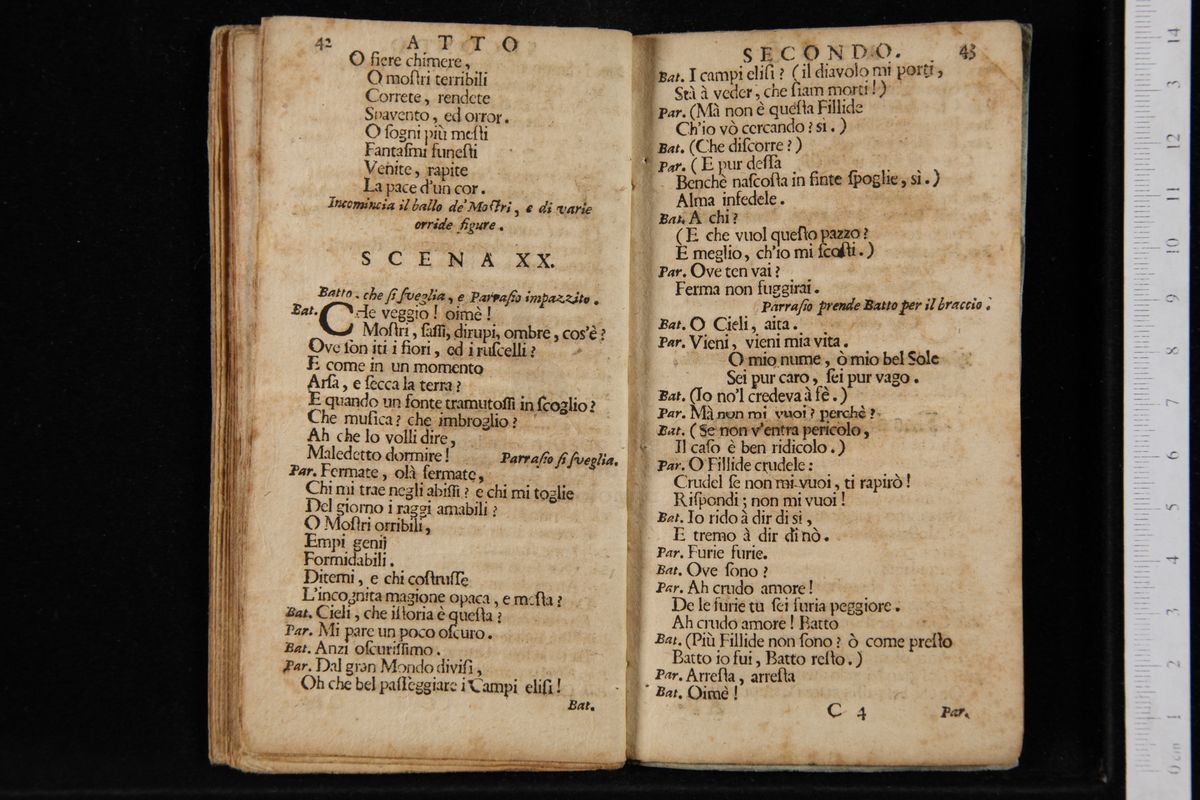 42 ATTO
O fiere chimere,
O moſtri terribili
Correte, rendete
Spavento, ed orror.
O ſogni più meſti
Fantaſmi funeſti
Venite, rapite
La pace d'un cor.
Incomincia il ballo de' Moſtri, e di varie
orride figure.
SCENA XX.
Batto, che ſi ſveglia, e Parraſio impazzito.
Bat. CHe veggio! oimè!
Moſtri, ſaſſi, dirupi, ombre, cos'è?
Ove ſon iti i fiori, ed i ruſcelli?
E come in un momento
Arſa, e ſecca la terra?
E quando un fonte tramutoſſi in ſcoglio?
Che muſica? che imbroglio?
Ah che lo volli dire,
Maledetto dormire! Parraſio ſi ſveglia.
Par. Fermate, olà fermate,
Chi mi trae negli abiſſi? e chi mi toglie
Del giorno i raggi amabili?
O Moſtri orribili,
Empi genij
Formidabili.
Ditemi, e chi coſtruſſe
L'incognita magione opaca, e meſta?
Bat. Cieli, che iſtoria è queſta?
Par. Mi pare un poco oſcuro.
Bat. Anzi oſcuriſſimo.
Par. Dal gran Mondo diviſi,
Oh che bel paſſeggiare i Campi eliſi!
Bat.
SECONDO. 43
Bat. I campi eliſi? (il diavolo mi porti,
Stà à veder, che ſiam morti!)
Par. (Mà non è queſta Fillide
Ch'io vò cercando? si.)
Bat. (Che diſcorre?)
Par. (E pur deſſa
Benchè naſcoſta in finte ſpoglie, sì.)
Alma infedele.
Bat. A chi?
(E che vuol queſto pazzo?
E meglio, ch'io mi ſcoſti.)
Par. Ove ten vai?
Ferma non fuggirai.
Parraſio prende Batto per il braccio.
Bat. O Cieli, aita.
Par. Vieni, vieni mia vita.
O mio nume, ò mio bel Sole
Sei pur caro, ſei pur vago.
Bat. (Io no'l credeva à fè.)
Par. Mà non mi vuoi? perchè?
Bat. (Se non v'entra pericolo,
Il caſo è ben ridicolo.)
Par. O Fillide crudele:
Crudel ſe non mi vuoi, ti rapirò!
Riſpondi; non mi vuoi!
Bat. Io rido à dir di si,
E tremo à dir di nò.
Par. Furie furie.
Bat. Ove ſono?
Par. Ah crudo amore!
De le furie tu ſei furia peggiore.
Ah crudo amore! Batto
Bat. (Più Fillide non ſono? ò come preſto
Batto io fui, Batto reſto.)
Par. Arreſta, arreſta
Bat. Oimè!
C 4 Par.
0 cm 1 2 3 4 5 6 7 8 9 10 11 12 13 14